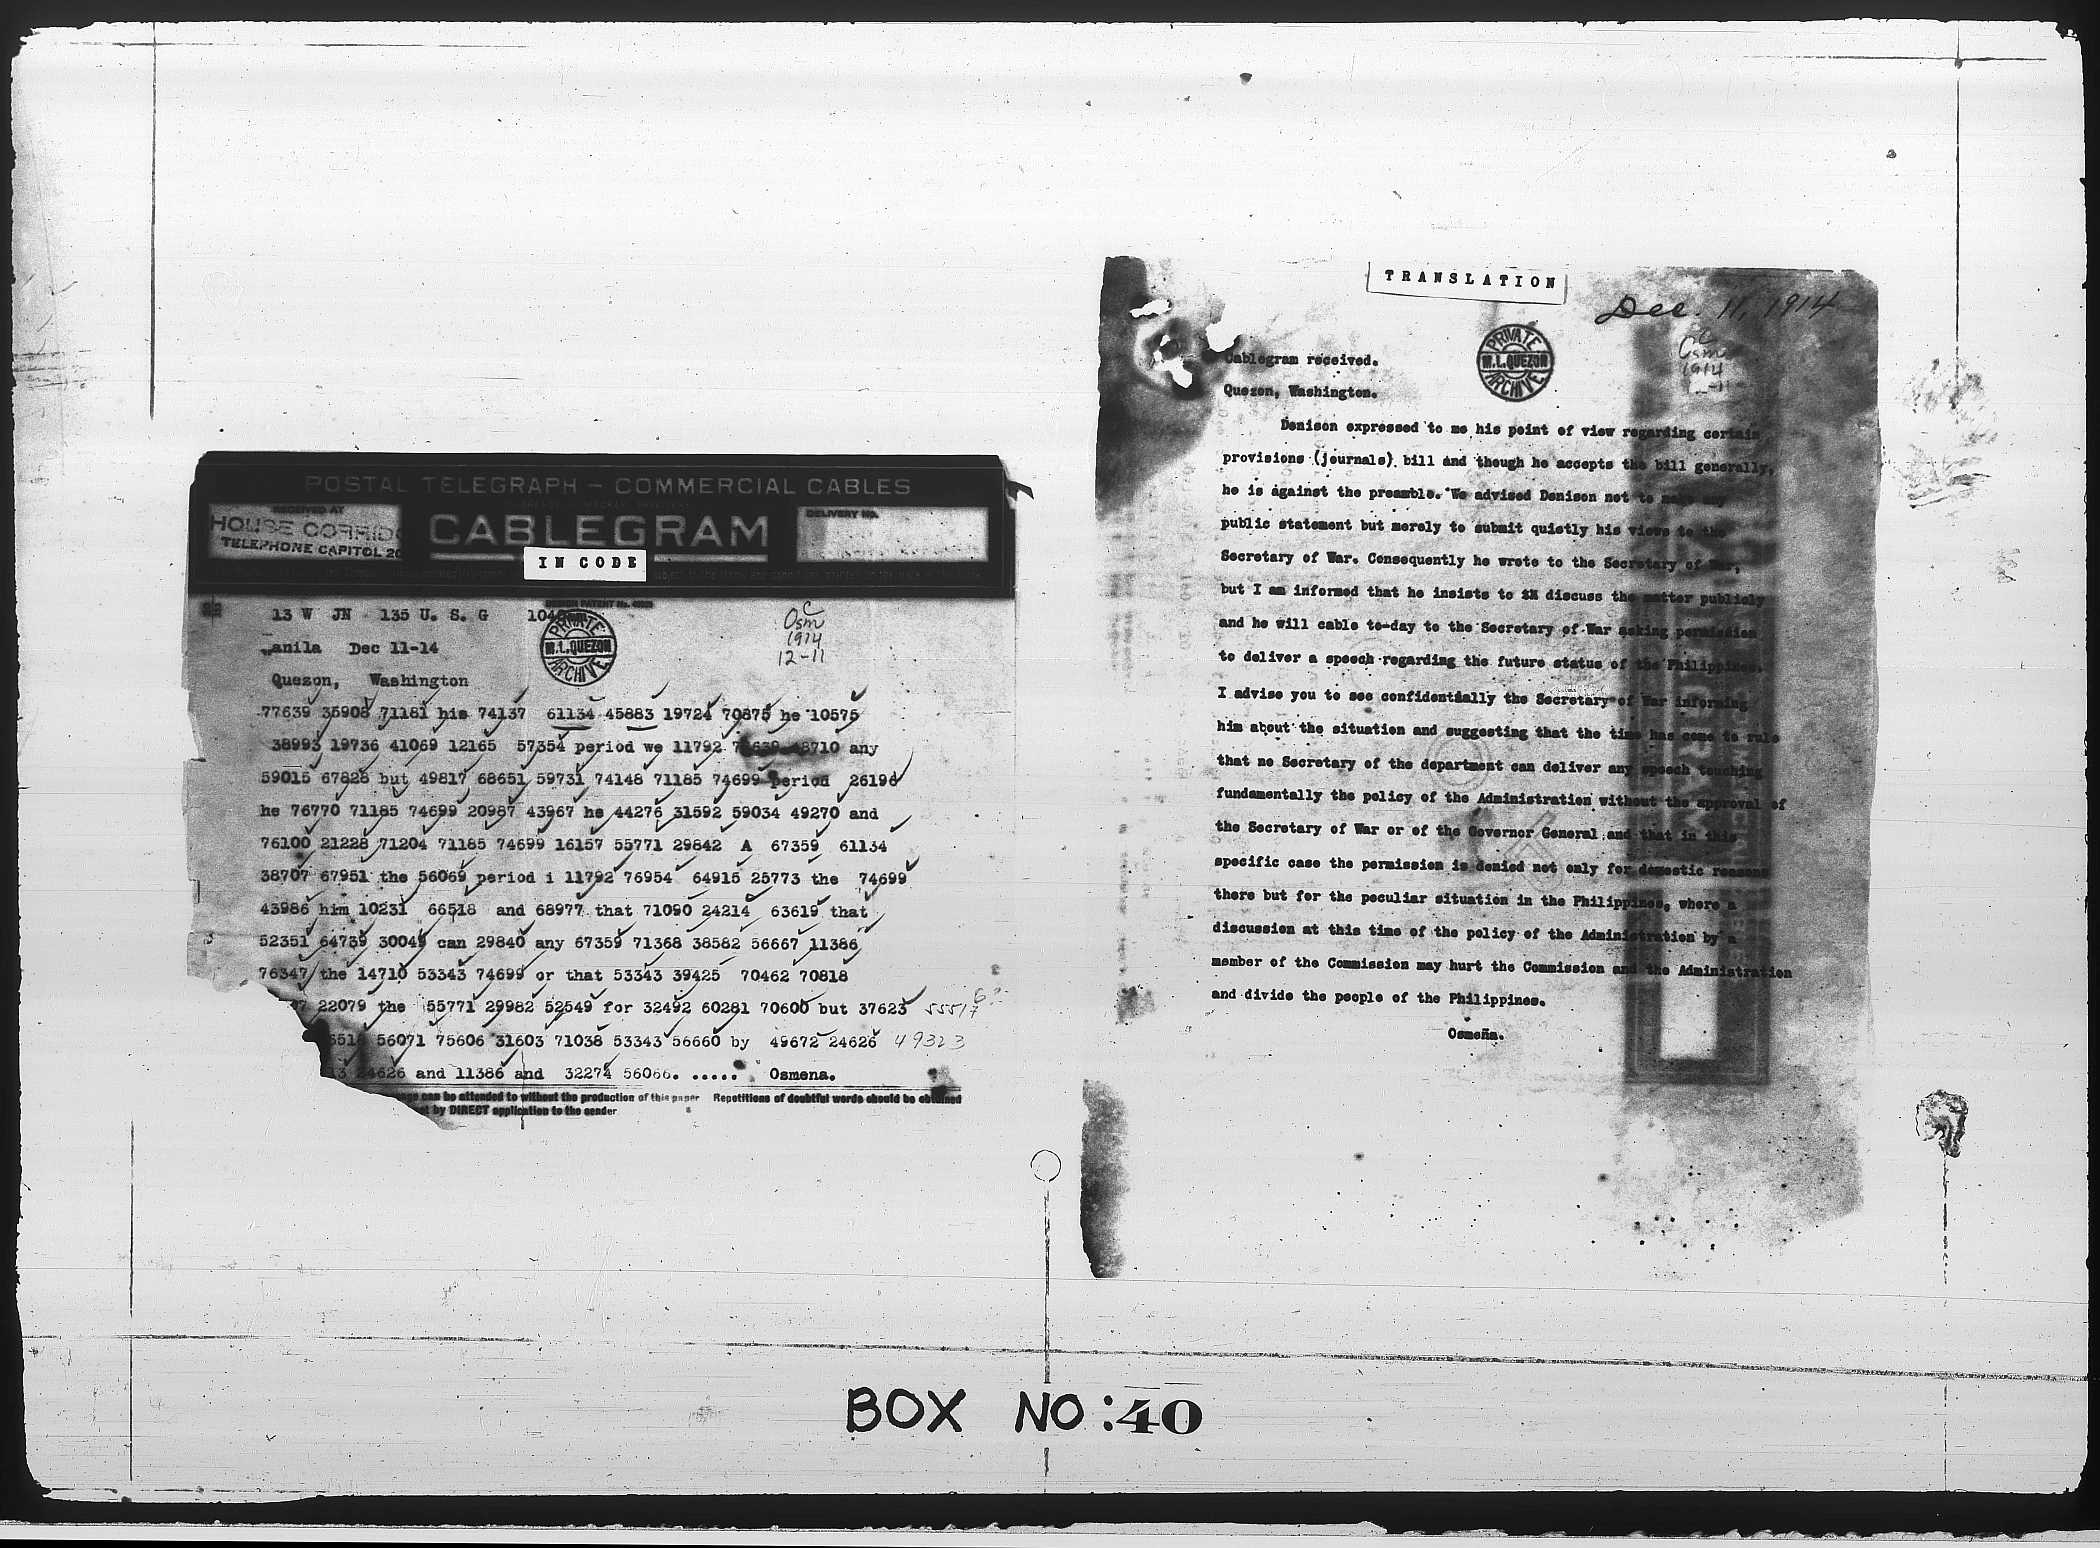 POSTAL TELEGRAPH - COMMERCIAL CABLES
RECEIVED AT
HOUSE CORRIDO
TELEPHONE CAPITOL 20
CABLEGRAM
DELIVERY NO.
IN CODE
13 W JN 135 U. S. G
PRIVATE
M.L.QUEZON
ARCHIVE
C
Osm
1914
12-11
anila Dec 11-14
Quezon, Washington
77639 35908 71181 his 74137 61134 45883 19724 70875 he 10575
38993 19736 41069 12165 57354 period we 11792 any
59015 67828 but 49817 68651 59731 74148 71185 74699 period 26196
he 76770 71185 74699 20987 43967 he 44276 31592 59034 49270 and
76100 21228 71204 71185 74699 16157 55771 29842 A 67359 61134
38707 67951 the 56069 period i 11792 76954 64915 25773 the 74699
43986 him 10231 66518 and 68977 that 71090 24214 63619 that
52351 64739 30049 can 29840 any 67359 71368 38582 56667 11386
76347 the 14710 53343 74699 or that 53343 39425 70462 70818
22079 the 55771 29982 52549 for 32492 60281 70600 but 37623 55517
56071 75606 31603 71038 53343 56660 by 49672 24626 49323
24626 and 11386 and 32274 56066. ..... Osmena.
can be attended to without the production of this paper Repetitions of doubtful words should be obtained
by DIRECT application to the sender
TRANSLATION
Dec. 11, 1914
PRIVATE
M.L.QUEZON
ARCHIVE
C
Osm
1914
Cablegram received.
Quezon, Washington.
Denison expressed to me his point of view regarding certain
provisions (journals) bill and though he accepts the bill generally,
he is against the preamble. We advised Denison not to make any
public statement but merely to submit quietly his views to the
Secretary of War. Consequently he wrote to the Secretary of War,
but I am informed that he insists to discuss the matter publicly
and he will cable to-day to the Secretary of War asking permission
to deliver a speech regarding the future status of the Philippines.
I advise you to see confidentially the Secretary of War informing
him about the situation and suggesting that the time has come to rule
that no Secretary of the department can deliver any speech touching
fundamentally the policy of the Administration without the approval of
the Secretary of War or of the Governor General and that in this
specific case the permission is denied not only for domestic reasons
there but for the peculiar situation in the Philippines, where a
discussion at this time of the policy of the Administration by a
member of the Commission may hurt the Commission and the Administration
and divide the people of the Philippines.
Osmeña.
BOX NO: 40